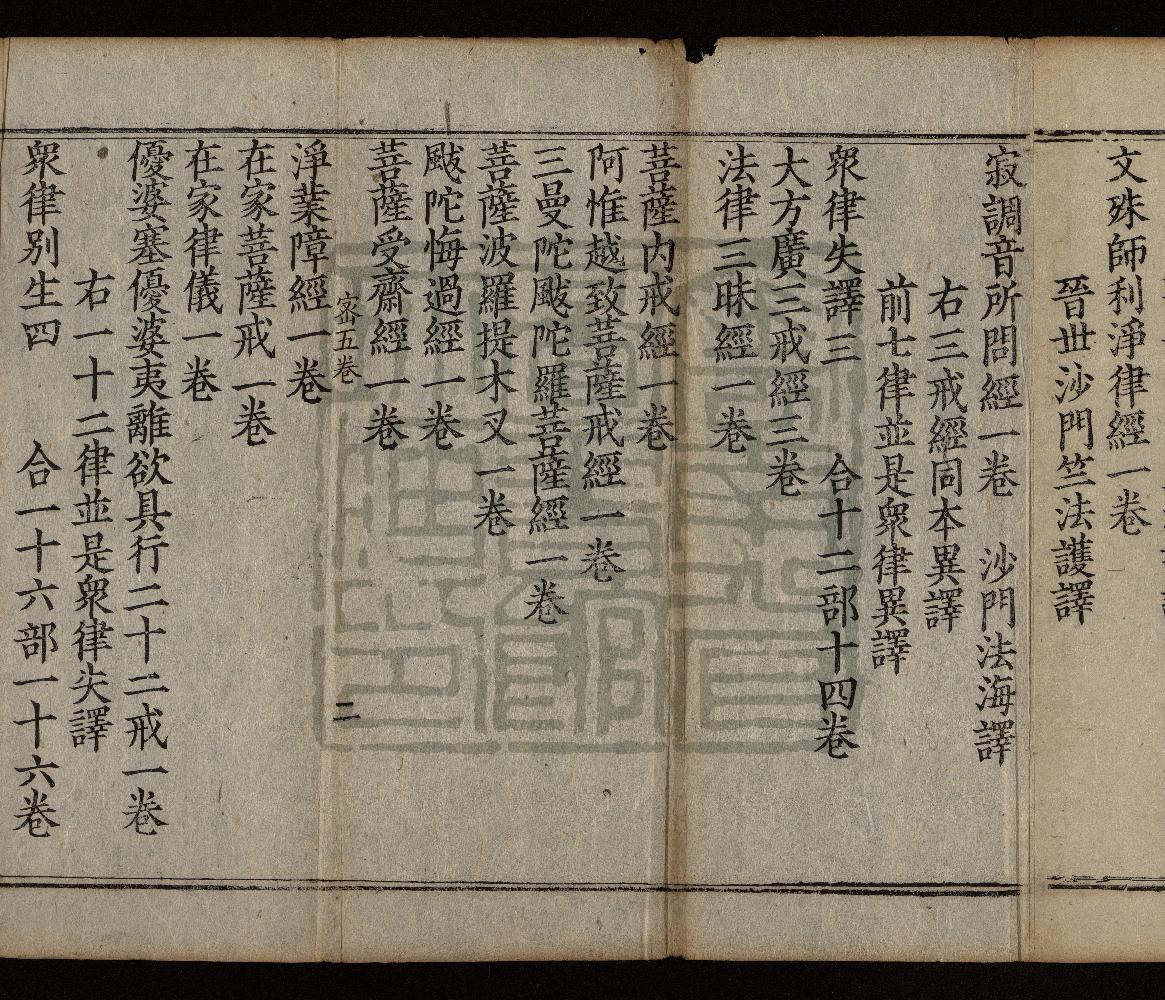 文殊師利淨律經一卷
晉世沙門竺法護譯
寂調音所問經一卷　沙門法海譯
右三戒經同本異譯
前七律並是衆律異譯
衆律失譯三　合十二部十四卷
大方廣三戒經三卷
法律三昧經一卷
菩薩内戒經一卷
阿惟越致菩薩戒經一卷
三曼陀颰陀羅菩薩經一卷
菩薩波羅提木叉一卷
颰陀悔過經一卷
菩薩受齋經一卷
密五卷　二
淨業障經一卷
在家菩薩戒一卷
在家律儀一卷
優婆塞優婆夷離欲具行二十二戒一卷
右一十二律並是衆律失譯
衆律别生四　合一十六部一十六卷